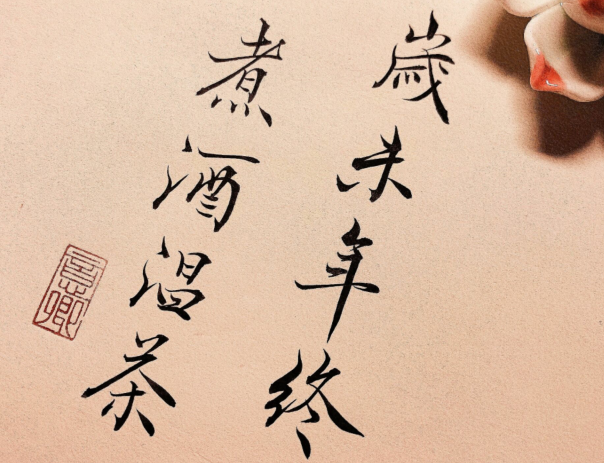 歲末年終
煮酒溫茶